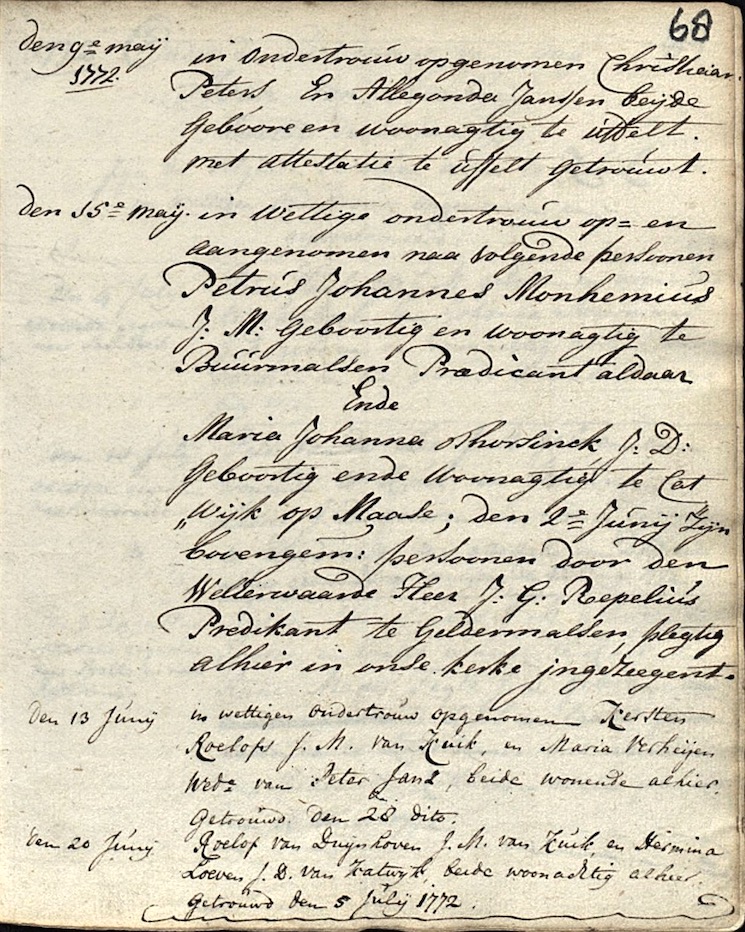 68
den 9e maÿ
1772.
in ondertrouw opgenomen Christiaan
Peters En Allegonda Janssen beijde
Geboore en woonagtig te üsselt.
met attestatie te üsselt getrouwt.
den 15e maÿ. in Wettige ondertrouw op= en
aangenomen naa volgende persoonen
Petrus Johannes Monhemius
J: M: Geboortig en woonagtig te
Buürmalsen Prædicant aldaar
Ende
Maria Johanna Thorsinck, J: D:
Geboortig ende Woonagtig te Cat
„Wijk op Maase; den 2e Junij Zijn
bovengem: persoonen door den
WelEerwaarde Heer J: G: Repelius
Predikant te Geldermalsen, plegtig
alhier in onse kerke jngezeegent.
den 13 Junij in wettigen ondertrouw opgenomen Kersten
Roelofs J. M. van Kuik, en Maria Verheijen
Wede van Peter Jans, beide wonende alhier.
Getrouwd den 28 dito.
den 20 Junij Roelof van Duijnhoven J. M. van Kuik, en Hermina
Loeven J. D. van Katwyk, beide woonachtig alhier
getrouwd den 5 Julij 1772.